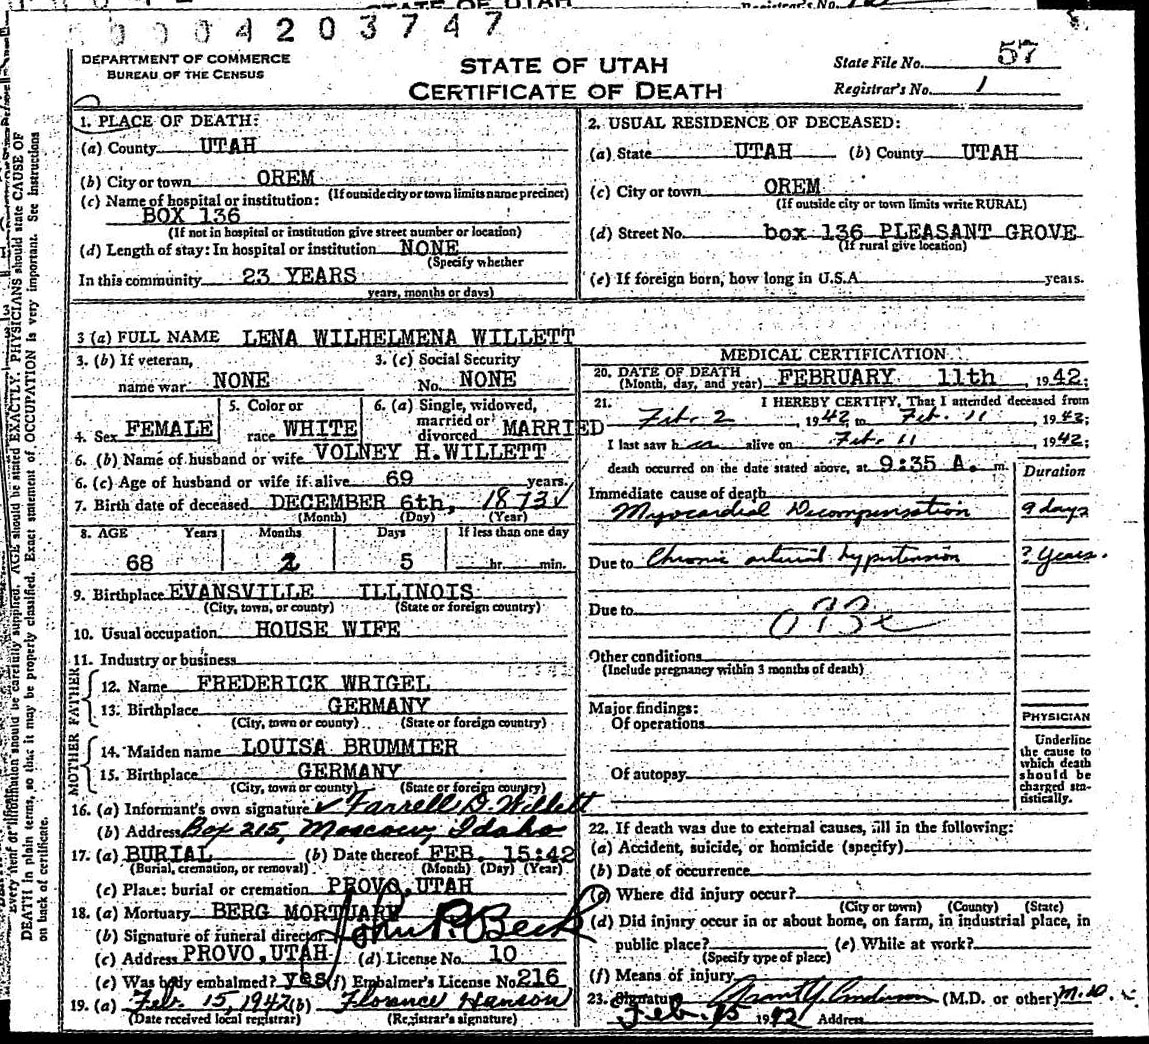 STATE OF UTAH
Registrar's No.
0004203747
DEPARTMENT OF COMMERCE
BUREAU OF THE CENSUS
STATE OF UTAH
CERTIFICATE OF DEATH
State File No. 57
Registrar's No. 1
1. PLACE OF DEATH:
(a) County UTAH
(b) City or town OREM
(If outside city or town limits name precinct)
(c) Name of hospital or institution:
BOX 136
(If not in hospital or institution give street number or location)
(d) Length of stay: In hospital or institution NONE
(Specify whether
In this community 23 YEARS
years, months or days)
2. USUAL RESIDENCE OF DECEASED:
(a) State UTAH (b) County UTAH
(c) City or town OREM
(If outside city or town limits write RURAL)
(d) Street No. box 136 PLEASANT GROVE
(If rural give location)
(e) If foreign born, how long in U.S.A. years.
3 (a) FULL NAME LENA WILHELMENA WILLETT
3. (b) If veteran,
name war NONE
3. (c) Social Security
No. NONE
4. Sex FEMALE
5. Color or
race WHITE
6. (a) Single, widowed,
married or
divorced MARRIED
6. (b) Name of husband or wife VOLNEY H. WILLETT
6. (c) Age of husband or wife if alive 69 years.
7. Birth date of deceased DECEMBER 6th, 1873
(Month) (Day) (Year)
8. AGE Years Months Days If less than one day
68 2 5 hr. min.
9. Birthplace EVANSVILLE ILLINOIS
(City, town, or county) (State or foreign country)
10. Usual occupation HOUSE WIFE
11. Industry or business
FATHER
12. Name FREDERICK WRIGEL
13. Birthplace GERMANY
(City, town or county) (State or foreign country)
MOTHER
14. Maiden name LOUISA BRUMMIER
15. Birthplace GERMANY
(City, town or county) (State or foreign country)
16. (a) Informant's own signature Farrell D. Willett
(b) Address Box 215, Moscow, Idaho
17. (a) BURIAL (b) Date thereof FEB. 15:42
(Burial, cremation, or removal) (Month) (Day) (Year)
(c) Place: burial or cremation PROVO, UTAH
18. (a) Mortuary BERG MORTUARY
(b) Signature of funeral director John P. Beck
(c) Address PROVO, UTAH (d) License No. 10
(e) Was body embalmed? yes (f) Embalmer's License No. 216
19. (a) Feb. 15, 1942 (b) Florence Hanson
(Date received local registrar) (Registrar's signature)
MEDICAL CERTIFICATION
20. DATE OF DEATH
(Month, day, and year) FEBRUARY 11th, 1942;
21. I HEREBY CERTIFY, That I attended deceased from
Feb. 2, 1942 to Feb. 11 1942;
I last saw h alive on Feb. 11 1942;
death occurred on the date stated above, at 9:35 A. m.
Duration
Immediate cause of death
Myocardial Decompensation 9 days
Due to Chronic arterial hypertension ? Years.
Due to
Other conditions
(Include pregnancy within 3 months of death)
Major findings:
Of operations
Of autopsy
PHYSICIAN
Underline
the cause to
which death
should be
charged sta-
tistically.
22. If death was due to external causes, fill in the following:
(a) Accident, suicide, or homicide (specify)
(b) Date of occurrence
(c) Where did injury occur?
(City or town) (County) (State)
(d) Did injury occur in or about home, on farm, in industrial place, in
public place? (e) While at work?
(Specify type of place)
(f) Means of injury
23. Signature (M.D. or other) M.D.
Feb. 15 1942 Address
Every item of information should be carefully supplied. AGE should be stated EXACTLY. PHYSICIANS should state CAUSE OF
DEATH in plain terms, so that it may be properly classified. Exact statement of OCCUPATION is very important. See instructions
on back of certificate.